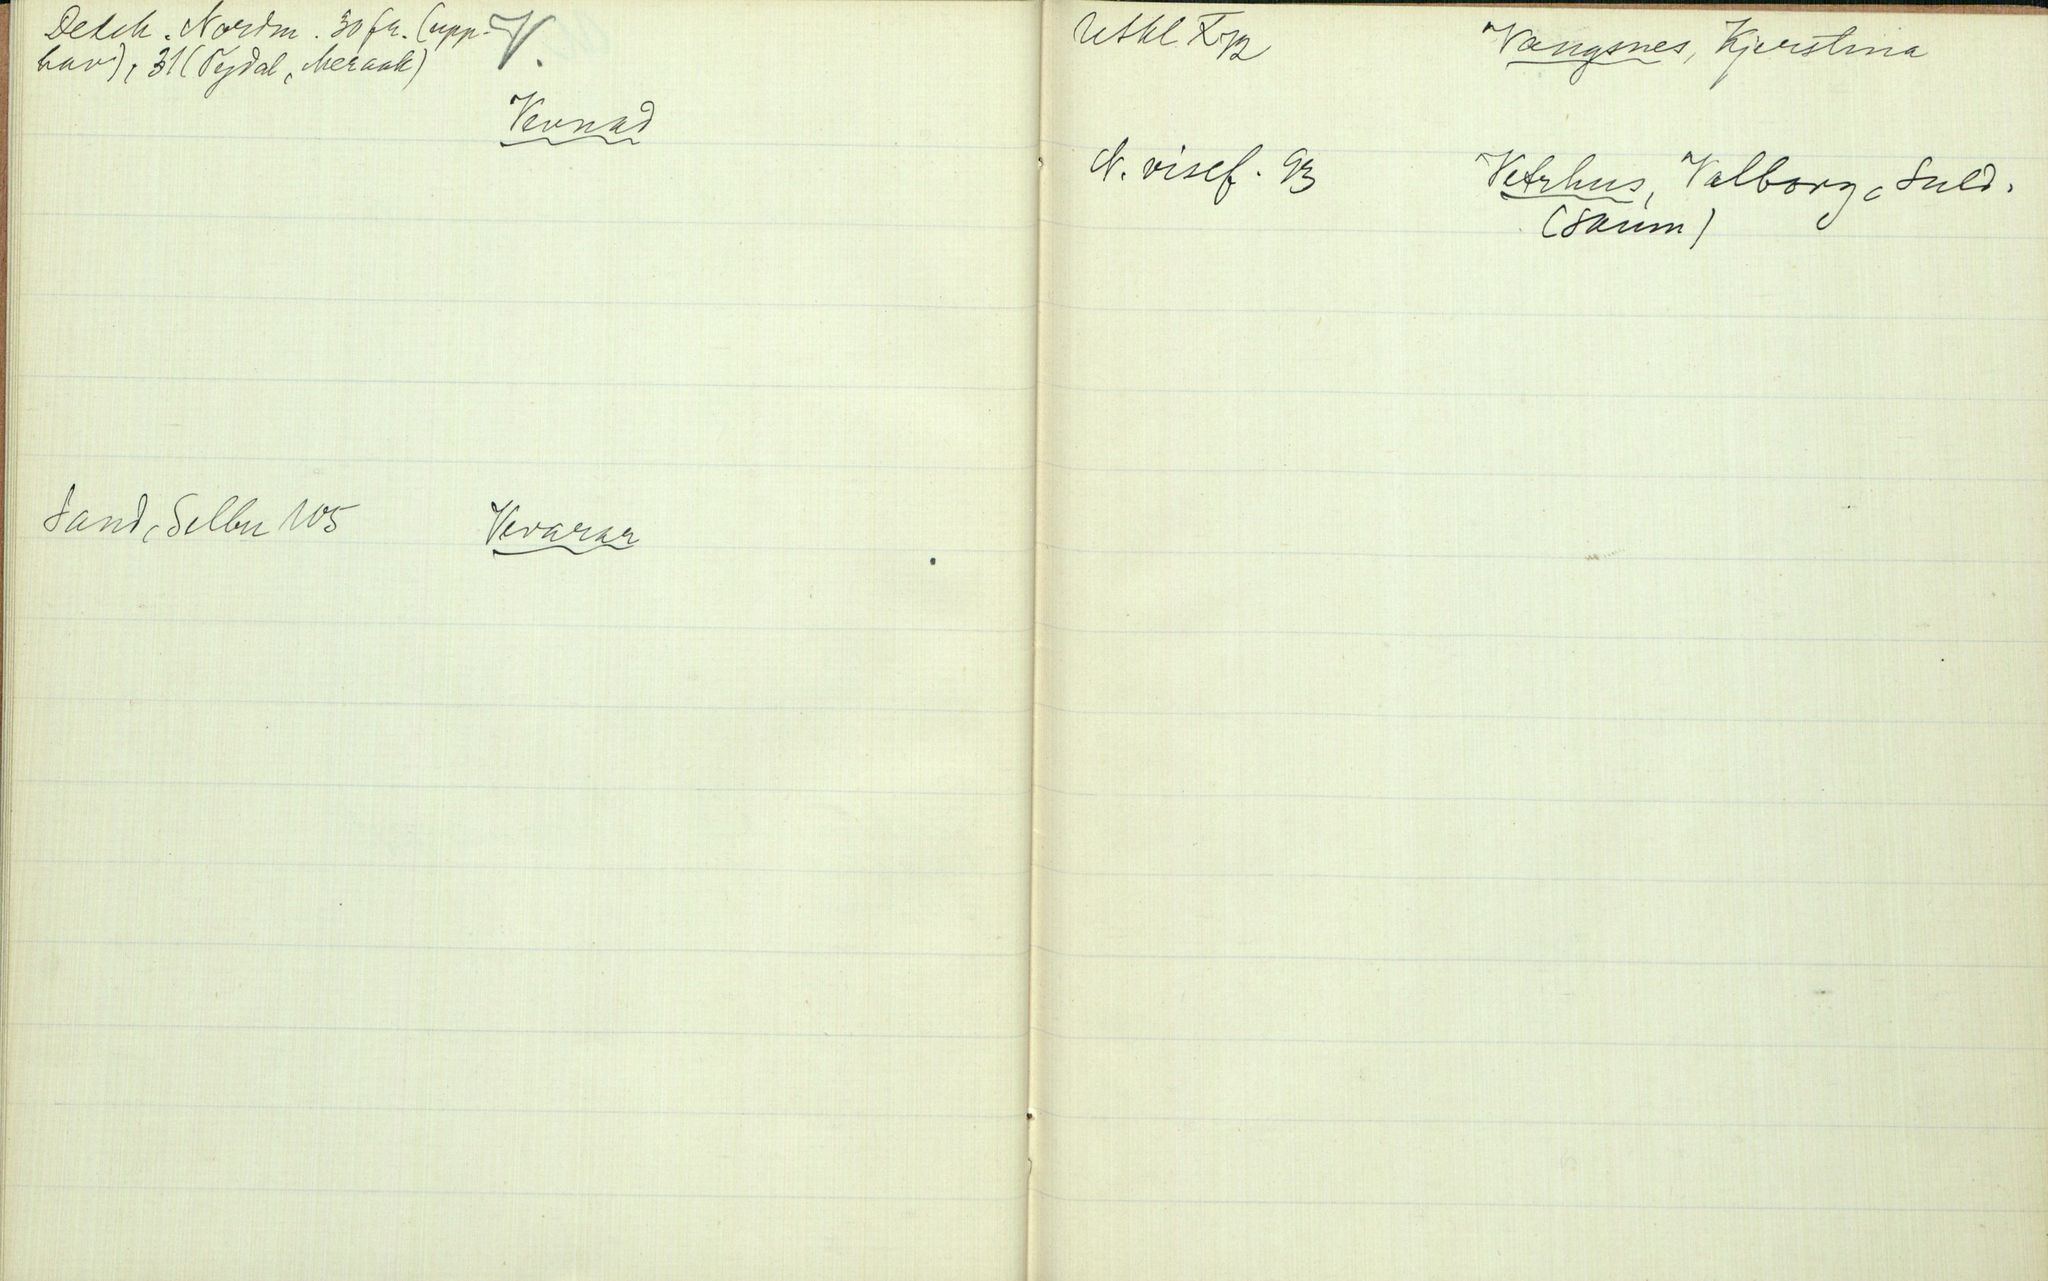 V.
Detch. Nordm. 30 fr. (upp-
hav), 31 (Tydal, Meraak)
Vevnad
Sand, Selbu 105
Vevarar
Utkl I 72
Vangsnes, Kjerstina
N. visef. 93
Vetrhus, Valborg, Suld.
(Saum)